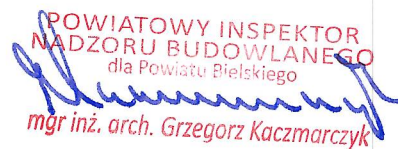 POWIATOWY INSPEKTOR
NADZORU BUDOWLANEGO
dla Powiatu Bielskiego
mgr inż. arch. Grzegorz Kaczmarczyk